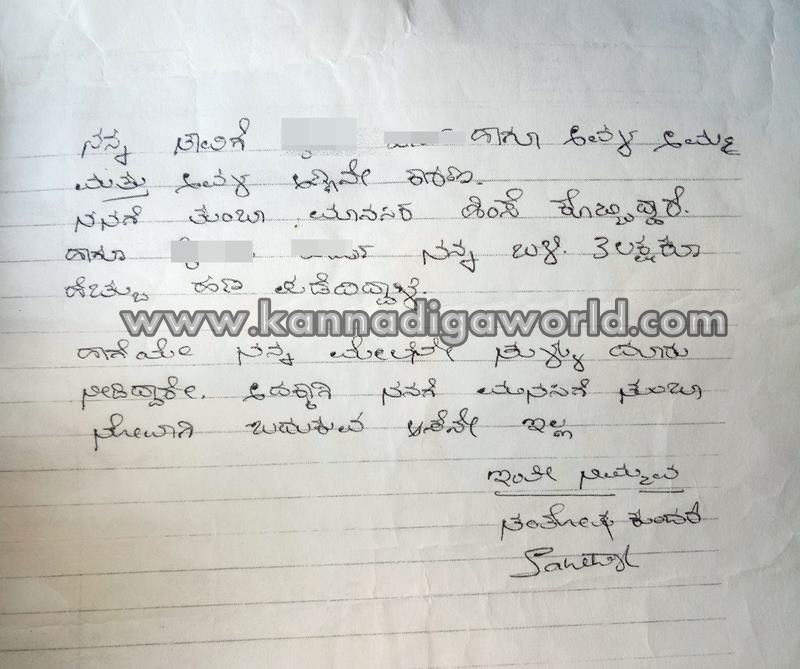 ನನ್ನ ಸಾವಿಗೆ ಹಾಗೂ ಅವಳ ಅಮ್ಮ
ಮತ್ತು ಅವಳ ಅಣ್ಣನೇ ಕಾರಣ.
ನನಗೆ ತುಂಬಾ ಮಾನಸಿಕ ಹಿಂಸೆ ಕೊಟ್ಟಿದ್ದಾರೆ.
ಹಾಗೂ ನನ್ನ ಬಳಿ. 3ಲಕ್ಷಕೂ
ಹೆಚ್ಚು ಹಣ ಪಡೆದಿದ್ದಾಳೆ.
www.kannadigaworld.com
ಹಾಗೆಯೇ ನನ್ನ ಮೇಲೆನೇ ಸುಳ್ಳು ದೂರು
ನೀಡಿದ್ದಾರೇ. ಅದಕ್ಕಾಗಿ ನನಗೆ ಮನಸಿಗೆ ತುಂಬಾ
ನೋವಾಗಿ ಬದುಕುವ ಆಸೆನೇ ಇಲ್ಲ
ಇಂತೀ ನಿಮ್ಮವ
ಸಂತೋಷ ಕುಂದರ